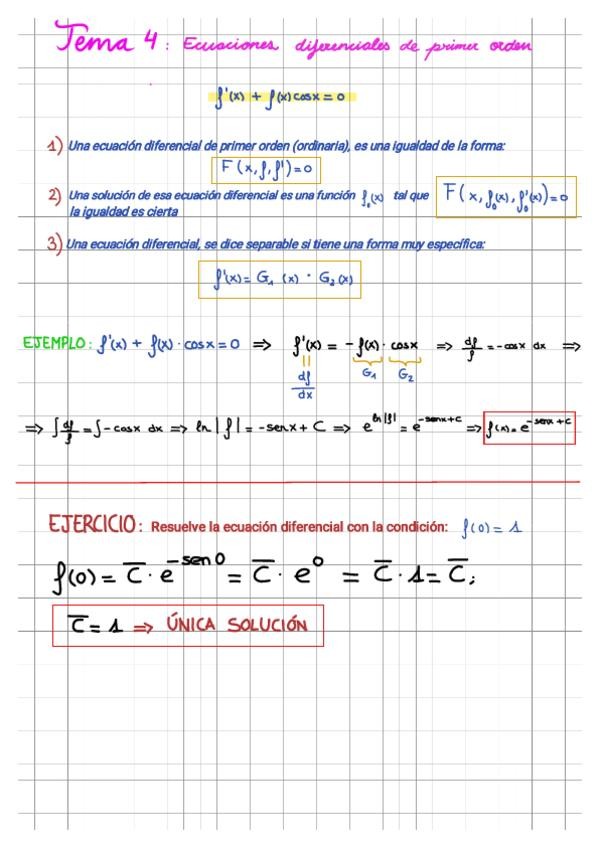 Tema 4: Ecuaciones diferenciales de primer orden
f'(x) + f(x) cos x = 0
1) Una ecuación diferencial de primer orden (ordinaria), es una igualdad de la forma:
F(x, f, f') = 0
2) Una solución de esa ecuación diferencial es una función f₀(x) tal que F(x, f₀(x), f₀'(x)) = 0
la igualdad es cierta
3) Una ecuación diferencial, se dice separable si tiene una forma muy específica:
f'(x) = G₁(x) · G₂(x)
EJEMPLO: f'(x) + f(x) · cos x = 0 ⇒ f'(x) = -f(x) · cos x ⇒ df/f = -cos x dx ⇒
df/dx G₁ G₂
⇒ ∫ df/f = ∫ -cos x dx ⇒ ln|f| = -sen x + C ⇒ e^ln|f| = e^-sen x + C ⇒ f(x) = e^-sen x + C
EJERCICIO: Resuelve la ecuación diferencial con la condición: f(0) = 1
f(0) = C̅ · e^-sen 0 = C̅ · e^0 = C̅ · 1 = C̅;
C̅ = 1 ⇒ ÚNICA SOLUCIÓN